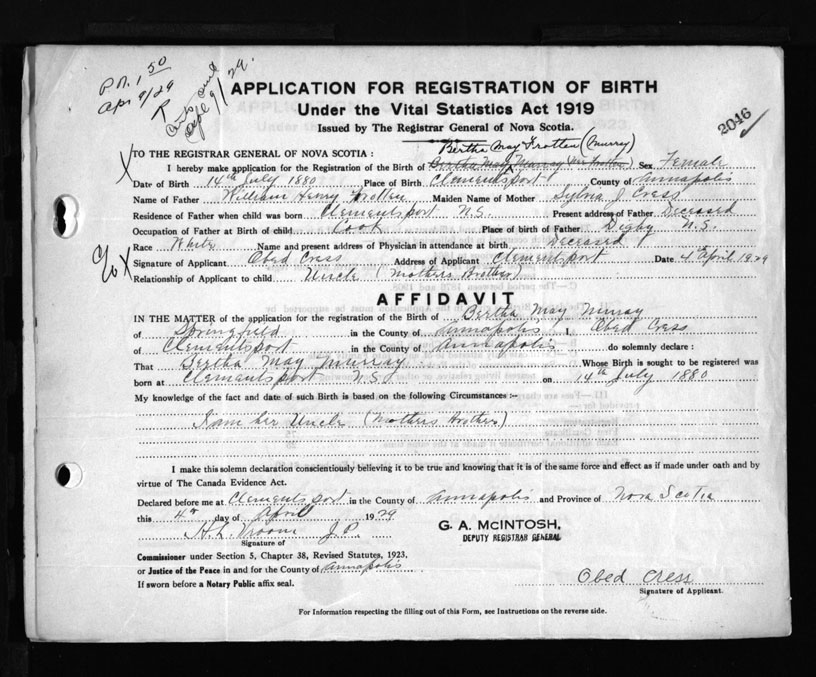 P.N. 1 50
Apr 9/29
APPLICATION FOR REGISTRATION OF BIRTH
Under the Vital Statistics Act 1919
Issued by The Registrar General of Nova Scotia.
2046
Bertha May Trotten (Murray)
TO THE REGISTRAR GENERAL OF NOVA SCOTIA :
I hereby make application for the Registration of the Birth of Bertha May Murray Sex Female
Date of Birth 14th July 1880 Place of Birth Clementsport County of Annapolis
Name of Father William Henry Trotten Maiden Name of Mother Sylvia J. Cress
Residence of Father when child was born Clementsport N.S. Present address of Father Deceased
Occupation of Father at Birth of child Cook Place of birth of Father Digby N.S.
Race White Name and present address of Physician in attendance at birth Deceased
Signature of Applicant Obed Cress Address of Applicant Clementsport Date 4th April 1929
Relationship of Applicant to child Uncle (Mothers Brother)
AFFIDAVIT
IN THE MATTER of the application for the registration of the Birth of Bertha May Murray
of Springfield in the County of Annapolis I, Obed Cress
of Clementsport in the County of Annapolis do solemnly declare :
That Bertha May Murray Whose Birth is sought to be registered was
born at Clementsport N.S. on 14th July 1880
My knowledge of the fact and date of such Birth is based on the following Circumstances :-
I am her Uncle (Mothers Brother)
I make this solemn declaration conscientiously believing it to be true and knowing that it is of the same force and effect as if made under oath and by
virtue of The Canada Evidence Act.
Declared before me at Clementsport in the County of Annapolis and Province of Nova Scotia
this 4th day of April 1929
H. L. Vroom J.P.
Signature of
G. A. McINTOSH,
DEPUTY REGISTRAR GENERAL
Commissioner under Section 5, Chapter 38, Revised Statutes, 1923,
or Justice of the Peace in and for the County of Annapolis
If sworn before a Notary Public affix seal.
Obed Cress
Signature of Applicant.
For Information respecting the filling out of this Form, see Instructions on the reverse side.